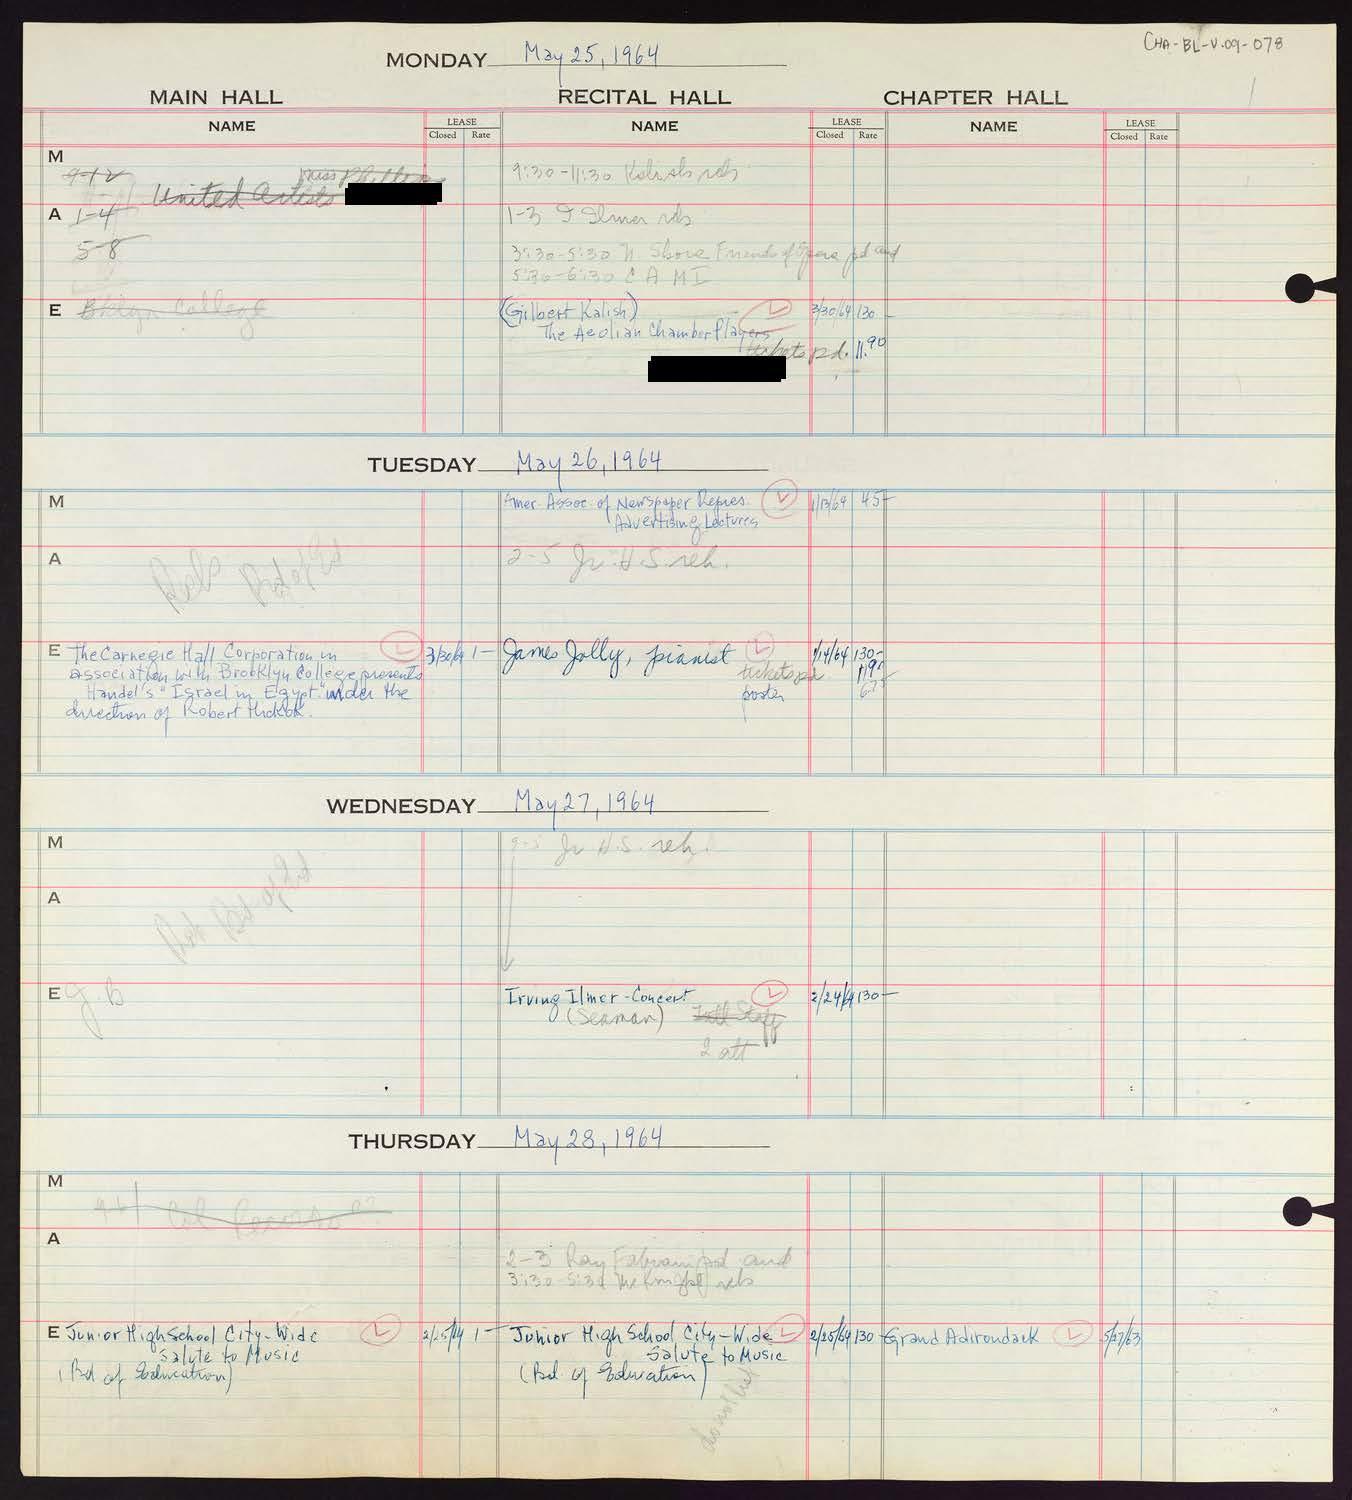 CHA-BL-V.09-078
MONDAY May 25, 1964
MAIN HALL RECITAL HALL CHAPTER HALL
NAME LEASE Closed Rate NAME LEASE Closed Rate NAME LEASE Closed Rate
M
9-12 Miss Phillips
United Artists
9:30-11:30 Kalish reh
A 1-4
1-3 I Ilmer reh
5-8
3:30-5:30 N. Shore Friends of Opera pd and
5:30-6:30 C A M I
E Bklyn College
(Gilbert Kalish) L 3/30/64 130-
The Aeolian Chamber Players
tickets pd. 11.90
TUESDAY May 26, 1964
M
Amer. Assoc. of Newspaper Repres. L 1/13/64 45-
Advertising Lectures
A
2-5 Jr. H.S. reh.
Bd of Ed
E The Carnegie Hall Corporation in L 3/30/64 1-
association with Brooklyn College presents
Handel's "Israel in Egypt" under the
direction of Robert Hickok.
James Jolly, pianist L 1/14/64 130-
tickets pd
poster
WEDNESDAY May 27, 1964
M
9-5 Jr H.S. reh.
A
Bd of Ed
E J.B
Irving Ilmer-Concert L 2/24/64 130-
(Seaman) Full Staff
2 att
THURSDAY May 28, 1964
M
Col Records
A
2-3 Ray Fabiani pd and
3:30-5:30 McKnight reh
E Junior High School City-Wide L 2/25/64 1-
Salute to Music
(Bd of Education)
Junior High School City-Wide L 2/25/64 130-
Salute to Music
(Bd. of Education)
Grand Adirondack L 5/27/63